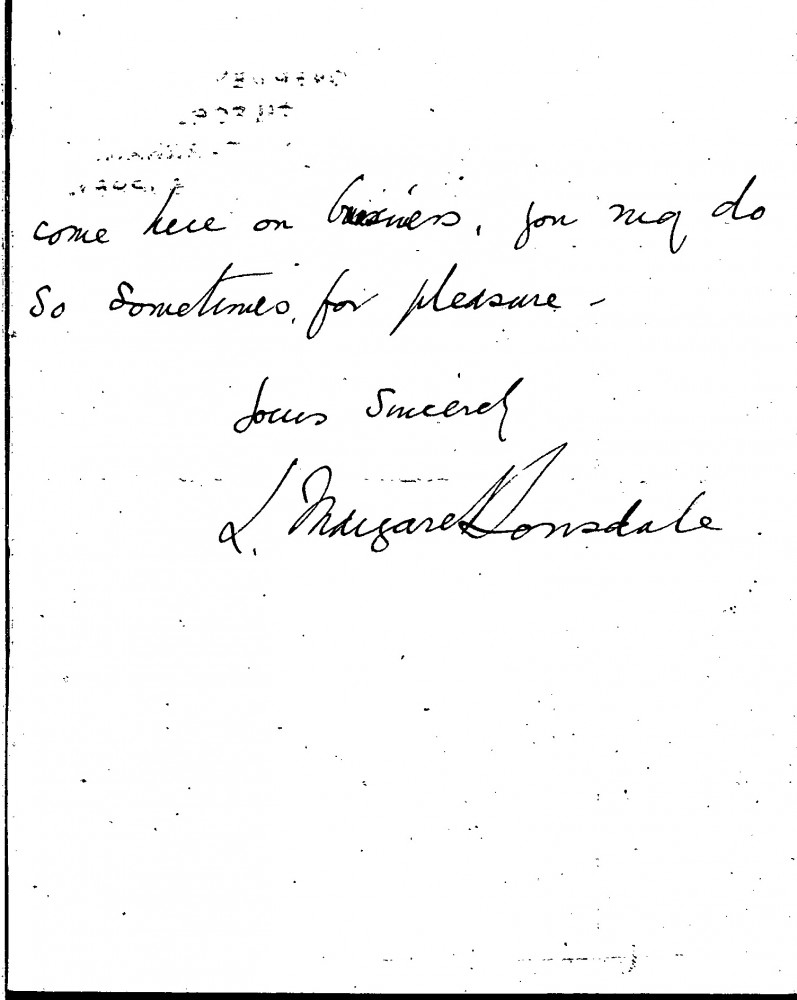 come here on business, you may do
so sometimes, for pleasure -
Yours Sincerely
L. Margaret Lonsdale